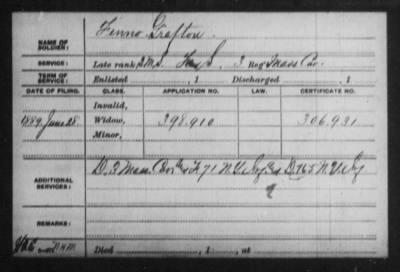 NAME OF SOLDIER: Fenno Grafton
SERVICE: Late rank, 3 Reg't Mass Cav.
TERM OF SERVICE: Enlisted , 1 Discharged , 1
DATE OF FILING. CLASS. APPLICATION NO. LAW. CERTIFICATE NO.
Invalid,
1889 June 28. Widow, 398.910 306,931
Minor,
ADDITIONAL SERVICES: D. 3 Mass. Cav 71 N.Y. Inf. D. 165 N.Y. Inf
REMARKS:
Died , 1 , at